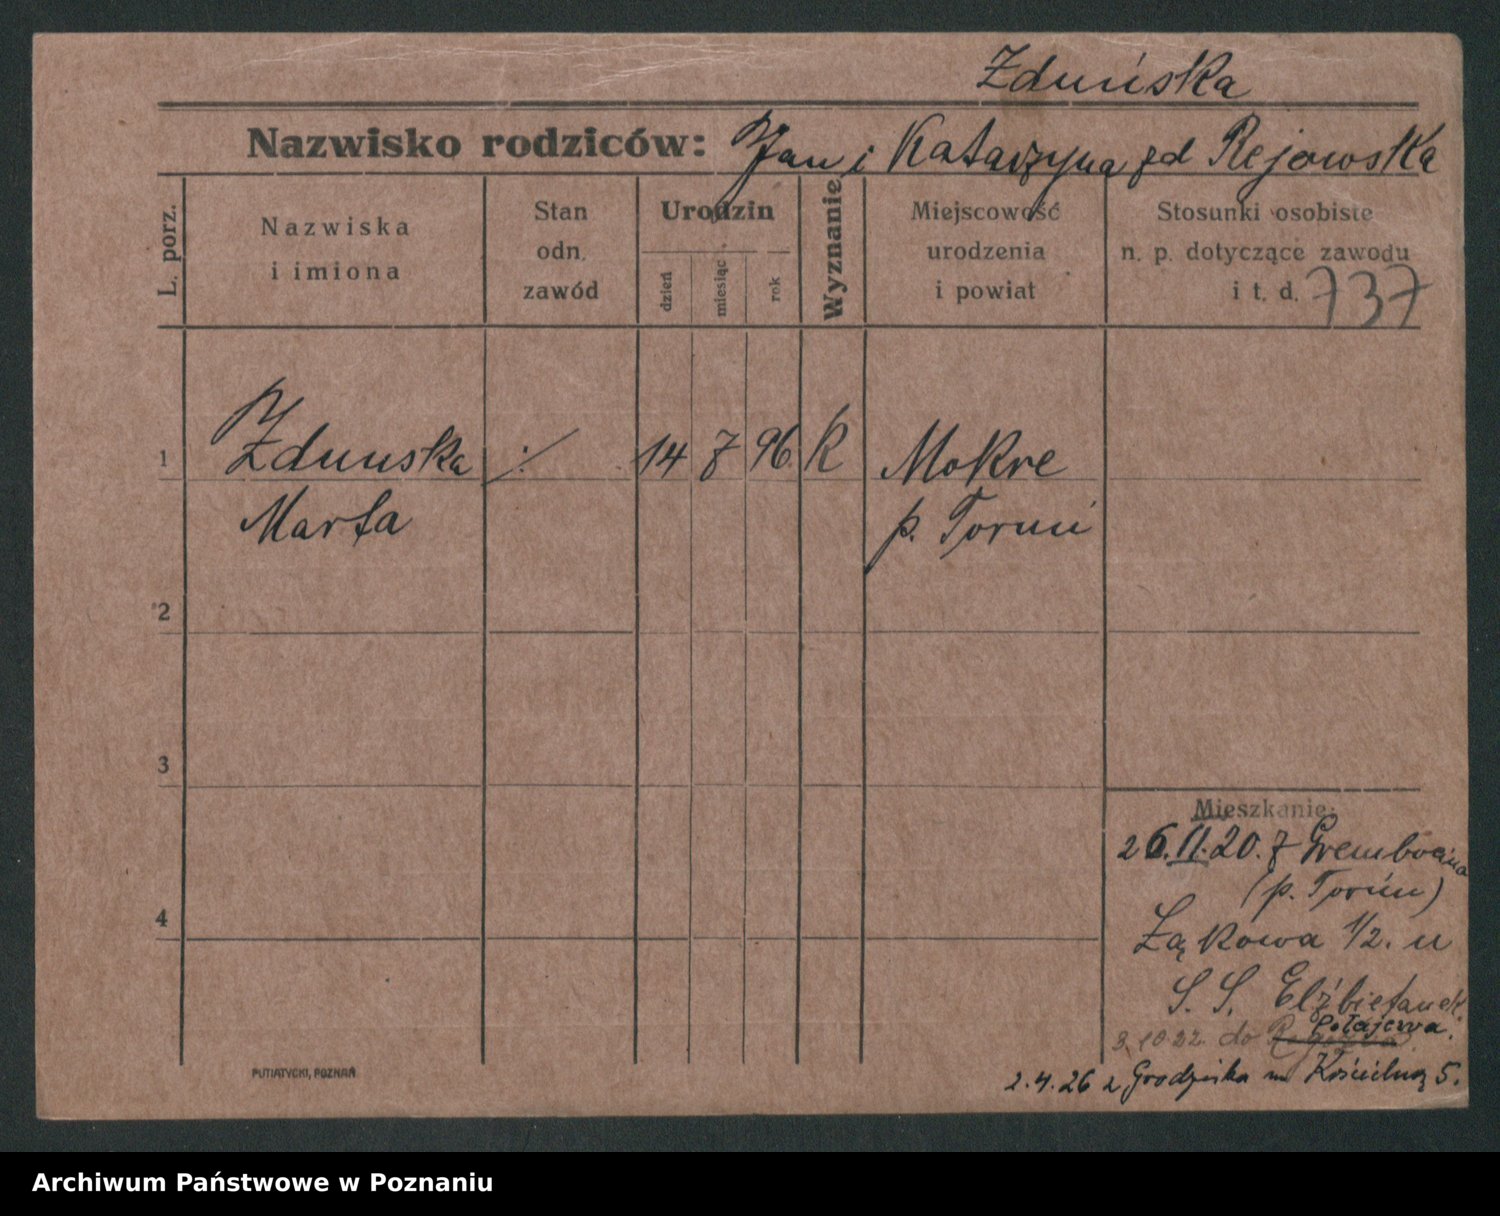 Zduńska
Nazwisko rodziców: Jan i Katarzyna zd Rejowska
L. porz.
Nazwiska
i imiona
Stan
odn.
zawód
Urodzin
dzień
miesiąc
rok
Wyznanie
Miejscowość
urodzenia
i powiat
Stosunki osobiste
n. p. dotyczące zawodu
i t. d.
737
1 Zdunska ·/· 14 7 96 K Mokre
Marta p. Toruń
2
3
4
Mieszkanie:
26.11.20. z Grembocina
(p. Toruń)
Łąkowa 1/2. u
S. S. Elżbietanek.
3.10.22. do Połajewa.
2.4.26 z Grodziska na Kościelną 5.
PUTIATYCKI, POZNAŃ
Archiwum Państwowe w Poznaniu